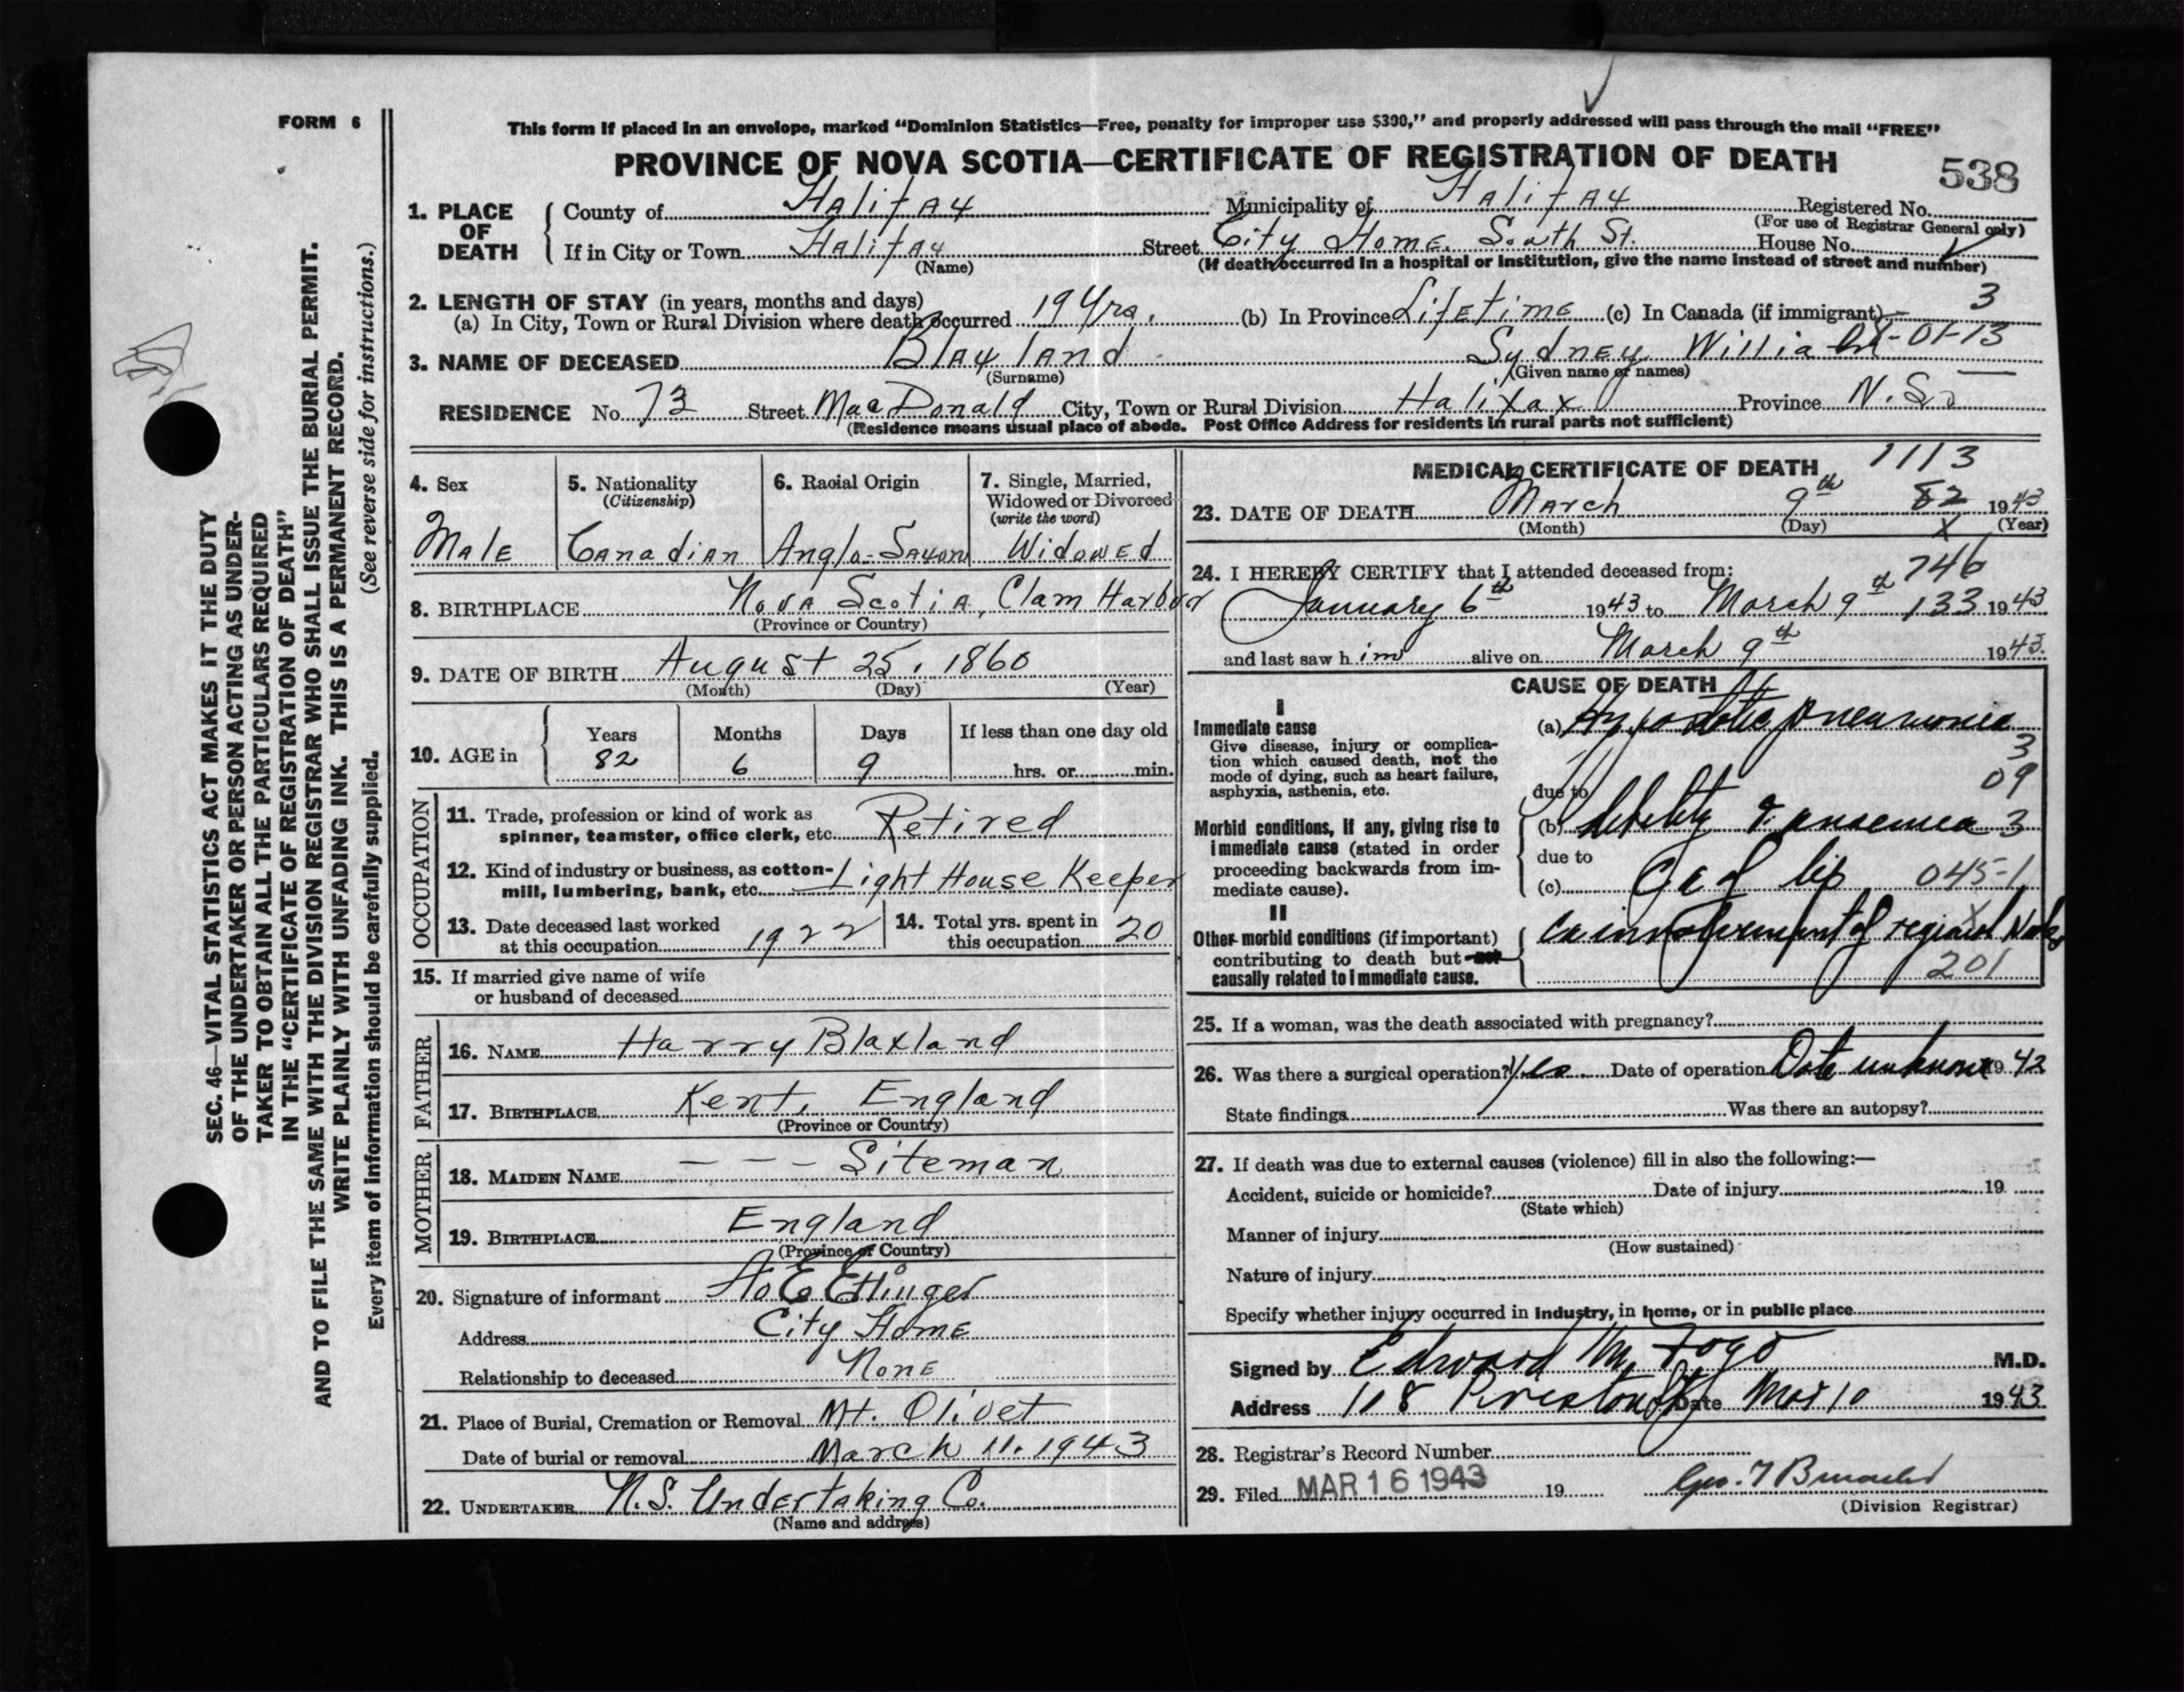 FORM 6
This form if placed in an envelope, marked “Dominion Statistics—Free, penalty for improper use $300,” and properly addressed will pass through the mail “FREE”
PROVINCE OF NOVA SCOTIA—CERTIFICATE OF REGISTRATION OF DEATH
538
1. PLACE OF DEATH
County of Halifax Municipality of Halifax Registered No.
(For use of Registrar General only)
If in City or Town Halifax Street City Home, South St. House No.
(Name) (If death occurred in a hospital or institution, give the name instead of street and number)
2. LENGTH OF STAY (in years, months and days)
(a) In City, Town or Rural Division where death occurred 19 Yrs. (b) In Province Lifetime (c) In Canada (if immigrant) – 3
3. NAME OF DECEASED Blaxland Sydney William -01-13
(Surname) (Given name or names)
RESIDENCE No. 73 Street MacDonald City, Town or Rural Division Halifax Province N.S.
(Residence means usual place of abode. Post Office Address for residents in rural parts not sufficient)
4. Sex
Male
5. Nationality
(Citizenship)
Canadian
6. Racial Origin
Anglo-Saxon
7. Single, Married,
Widowed or Divorced
(write the word)
Widowed
8. BIRTHPLACE Nova Scotia, Clam Harbor
(Province or Country)
9. DATE OF BIRTH August 25, 1860
(Month) (Day) (Year)
10. AGE in
Years Months Days If less than one day old
82 6 9 hrs. or min.
OCCUPATION
11. Trade, profession or kind of work as
spinner, teamster, office clerk, etc. Retired
12. Kind of industry or business, as cotton-
mill, lumbering, bank, etc. Light House Keeper
13. Date deceased last worked
at this occupation 1922
14. Total yrs. spent in
this occupation 20
15. If married give name of wife
or husband of deceased
FATHER
16. NAME Harry Blaxland
17. BIRTHPLACE Kent, England
(Province or Country)
MOTHER
18. MAIDEN NAME – – – Siteman
19. BIRTHPLACE England
(Province or Country)
20. Signature of informant Ettinger
Address City Home
Relationship to deceased None
21. Place of Burial, Cremation or Removal Mt. Olivet
Date of burial or removal March 11, 1943
22. UNDERTAKER N.S. Undertaking Co.
(Name and address)
MEDICAL CERTIFICATE OF DEATH 1113
23. DATE OF DEATH March 9th 82 1943
(Month) (Day) X (Year)
24. I HEREBY CERTIFY that I attended deceased from: 746
January 6th 1943 to March 9th 133 1943
and last saw him alive on March 9th 1943.
CAUSE OF DEATH
I
Immediate cause
Give disease, injury or complica-
tion which caused death, not the
mode of dying, such as heart failure,
asphyxia, asthenia, etc.
(a) Hypostatic pneumonia
3
09
due to
Morbid conditions, if any, giving rise to
immediate cause (stated in order
proceeding backwards from im-
mediate cause).
(b) debility & anaemia 3
due to
(c) Ca of lip 045-1
II
Other morbid conditions (if important)
contributing to death but not
causally related to immediate cause.
Ca involvement of regional Nodes
201
25. If a woman, was the death associated with pregnancy?
26. Was there a surgical operation? Yes. Date of operation Date unknown 1942
State findings Was there an autopsy?
27. If death was due to external causes (violence) fill in also the following:—
Accident, suicide or homicide? Date of injury 19
(State which)
Manner of injury
(How sustained)
Nature of injury
Specify whether injury occurred in industry, in home, or in public place
Signed by Edward M. Fogo M.D.
Address 118 Preston St Date Mar 10 1943
28. Registrar's Record Number
29. Filed MAR 16 1943 19 Geo. T
(Division Registrar)
SEC. 46—VITAL STATISTICS ACT MAKES IT THE DUTY
OF THE UNDERTAKER OR PERSON ACTING AS UNDER-
TAKER TO OBTAIN ALL THE PARTICULARS REQUIRED
IN THE “CERTIFICATE OF REGISTRATION OF DEATH”
AND TO FILE THE SAME WITH THE DIVISION REGISTRAR WHO SHALL ISSUE THE BURIAL PERMIT.
WRITE PLAINLY WITH UNFADING INK. THIS IS A PERMANENT RECORD.
Every item of information should be carefully supplied. (See reverse side for instructions.)